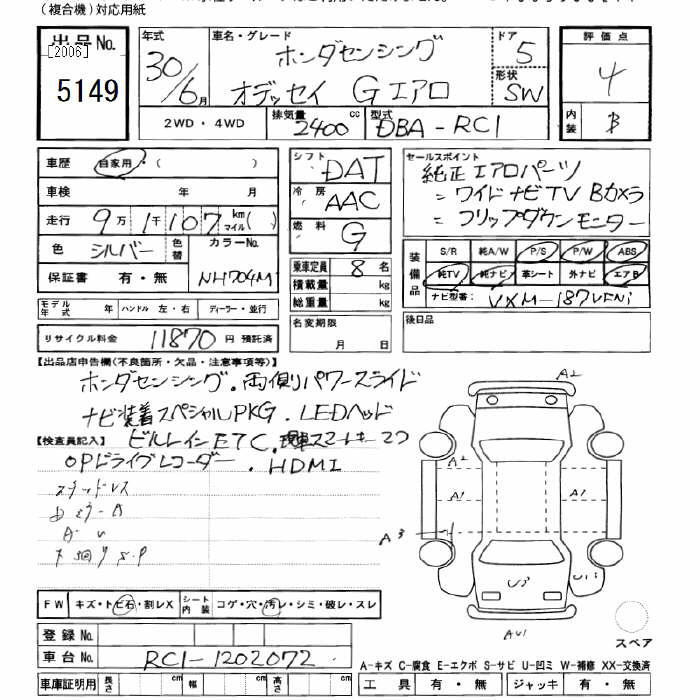 (複合機)対応用紙
出品No. [2006] 5149
年式 30/6月
車名・グレード ホンダセンシング オデッセイ Gエアロ
ドア 5
形状 SW
評価点 4
内装 B
2WD・4WD 排気量 2400 cc 型式 DBA-RC1
車歴 自家用・( )
車検 年 月
走行 9万1千107 km マイル( )
色 シルバー 色替 カラーNo. NH704M
保証書 有・無
モデル年式 年 ハンドル 左・右 ディーラー・並行
リサイクル料金 11870 円 預託済
シフト DAT
冷房 AAC
燃料 G
乗車定員 8 名
積載量 kg
総重量 kg
名変期限 月 日
セールスポイント
純正エアロパーツ
〃 ワイドナビTV Bカメラ
〃 フリップダウンモニター
装備品 S/R 純A/W P/S P/W ABS
純TV 純ナビ 革シート 外ナビ エアB
ナビ型番: VXM-187VFNi
後日品
【出品店申告欄(不良箇所・欠品・注意事項等)】
ホンダセンシング・両側パワースライド
ナビ装着スペシャルPKG・LEDヘッド
ビルトインETC・スマートキー2つ
【検査員記入】
OPドライブレコーダー・HDMI
スタッドレス
A2
A2
A1
A1
A3
U3
AU1
FW キズ・トビ石・割レX シート内装 コゲ・穴・汚レ・シミ・破レ・スレ
登録No.
車台No. RC1-1202072
車庫証明用 長さ cm 幅 cm 高さ cm
スペア
A-キズ C-腐食 E-エクボ S-サビ U-凹ミ W-補修 XX-交換済
工具 有・無 ジャッキ 有・無